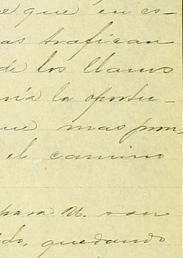 que en es-
as trafican
de los llanos
nía la oportu-
ue mas pron-
el camino
para U. son
do, quedando